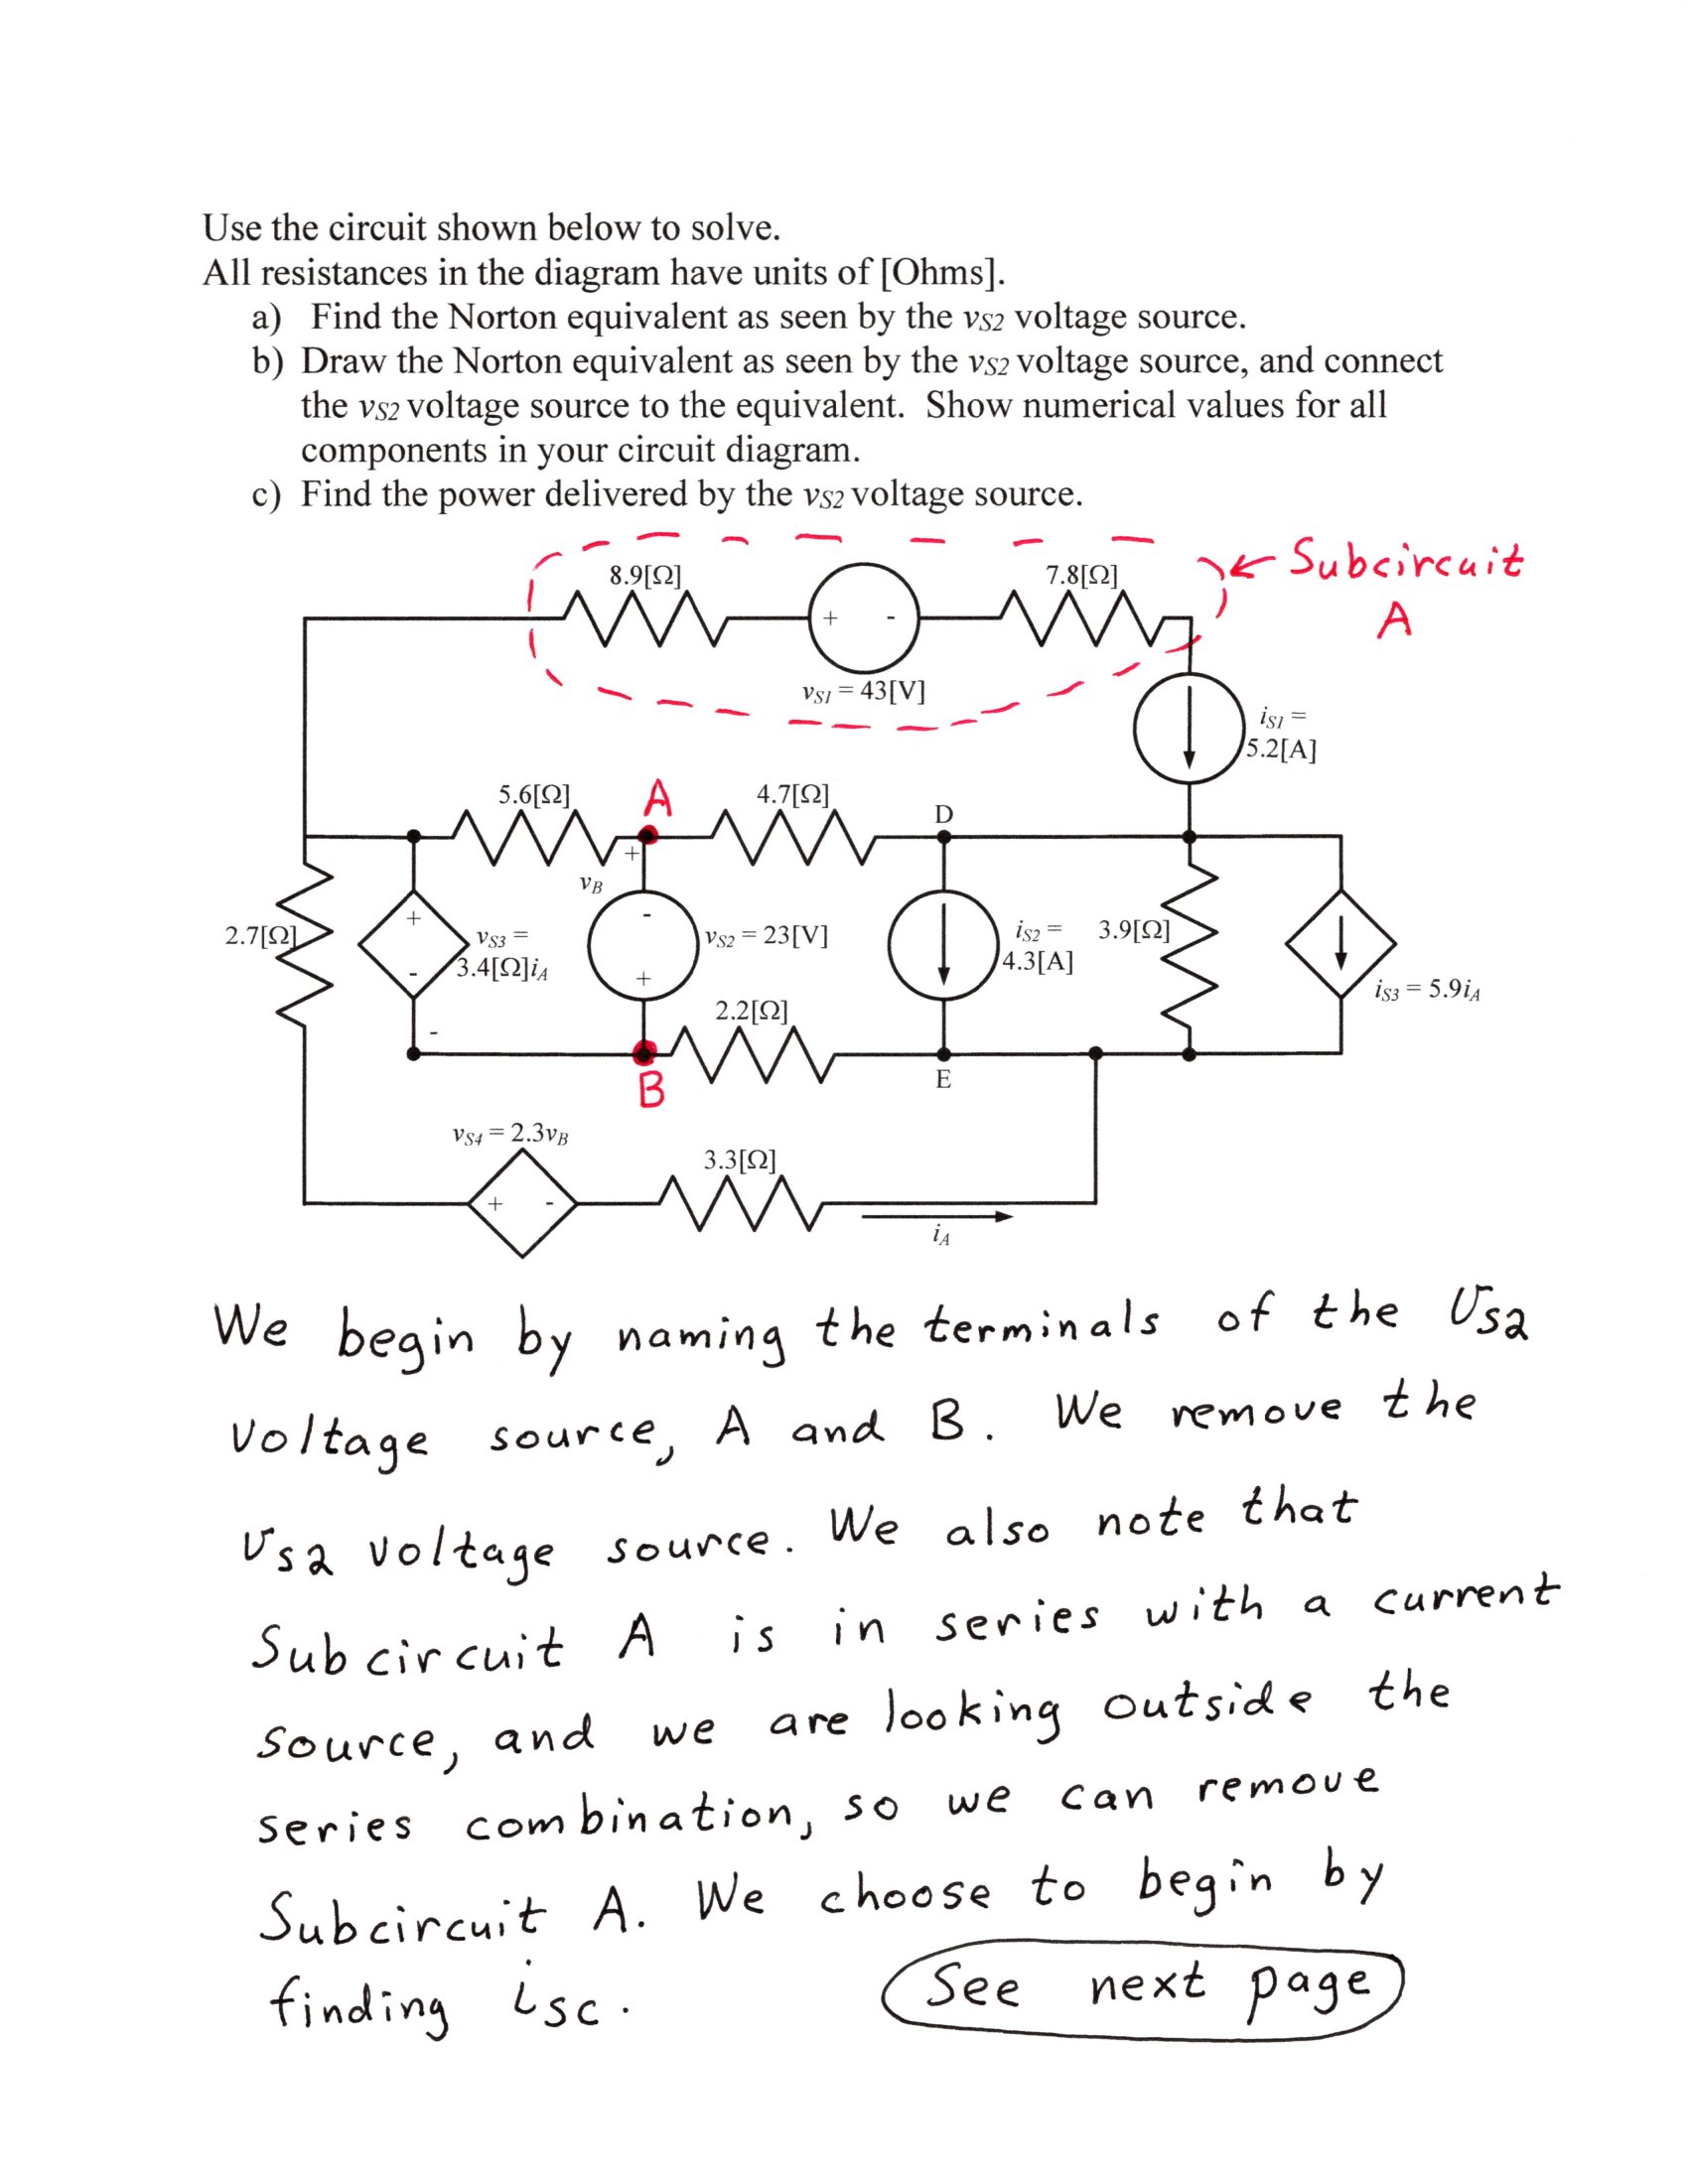 Use the circuit shown below to solve.
All resistances in the diagram have units of [Ohms].
a) Find the Norton equivalent as seen by the vS2 voltage source.
b) Draw the Norton equivalent as seen by the vS2 voltage source, and connect
the vS2 voltage source to the equivalent. Show numerical values for all
components in your circuit diagram.
c) Find the power delivered by the vS2 voltage source.
Subcircuit
A
8.9[Ω]
7.8[Ω]
+ -
vS1 = 43[V]
iS1 =
5.2[A]
5.6[Ω]
A
4.7[Ω]
D
+
vB
-
+
2.7[Ω]
+
-
vS3 =
3.4[Ω]iA
-
vS2 = 23[V]
iS2 =
4.3[A]
3.9[Ω]
iS3 = 5.9iA
2.2[Ω]
B
E
vS4 = 2.3vB
+ -
3.3[Ω]
iA
We begin by naming the terminals of the vS2
voltage source, A and B. We remove the
vS2 voltage source. We also note that
Subcircuit A is in series with a current
source, and we are looking outside the
series combination, so we can remove
Subcircuit A. We choose to begin by
finding iSC.
See next page